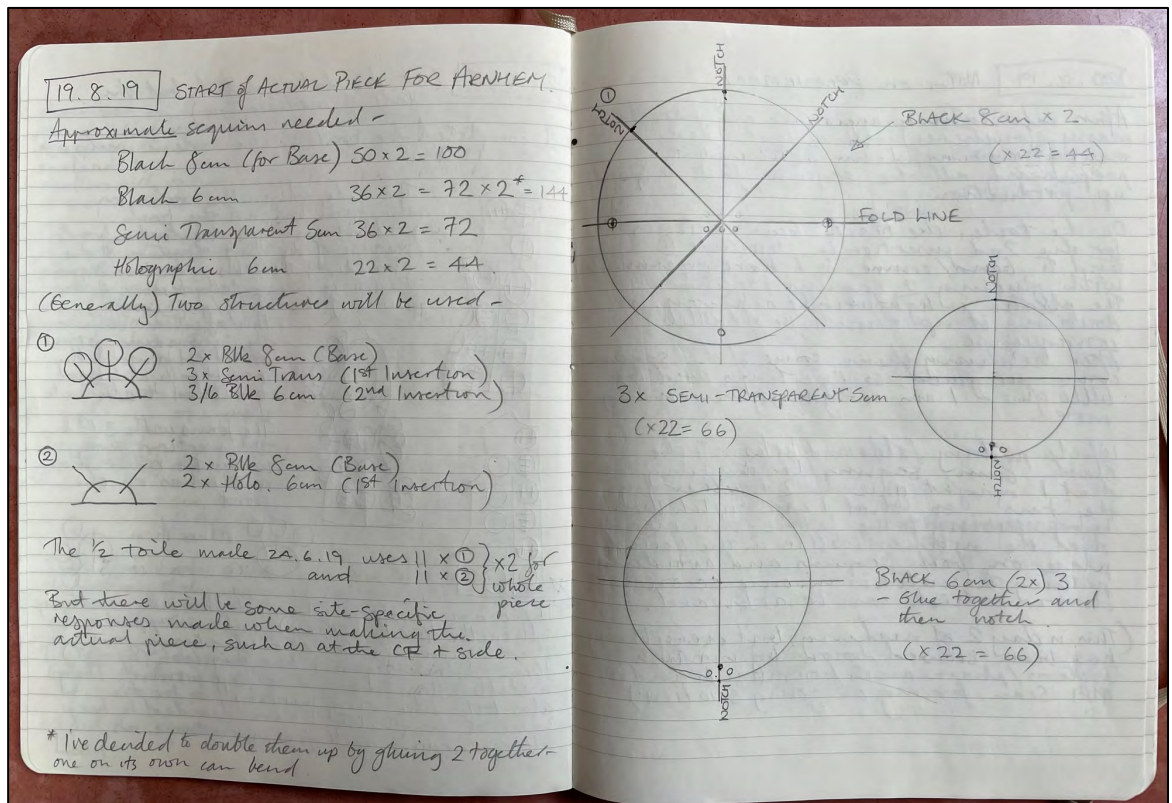 19.8.19 START of ACTUAL PIECE FOR ARNHEM.
Approximate sequins needed -
Black 8cm (for Base) 50 x 2 = 100
Black 6cm 36 x 2 = 72 x 2* = 144
Semi Transparent 5cm 36 x 2 = 72
Holographic 6cm 22 x 2 = 44
(Generally) Two structures will be used -
①
2 x Blk 8cm (Base)
3 x Semi Trans (1st Insertion)
3/6 Blk 6cm (2nd Insertion)
②
2 x Blk 8cm (Base)
2 x Holo. 6cm (1st Insertion)
The 1/2 toile made 24.6.19 uses 11 x ① } x2 for
and 11 x ② } whole
piece
But there will be some site-specific
responses made when making the
actual piece, such as at the CF + side.
* I've decided to double them up by gluing 2 together -
one on its own can bend.
①
NOTCH
NOTCH
NOTCH
BLACK 8cm x 2
(x 22 = 44)
FOLD LINE
NOTCH
3x SEMI-TRANSPARENT 5cm
(x22 = 66)
NOTCH
BLACK 6cm (2x) 3
- Glue together and
then notch.
(x 22 = 66)
NOTCH